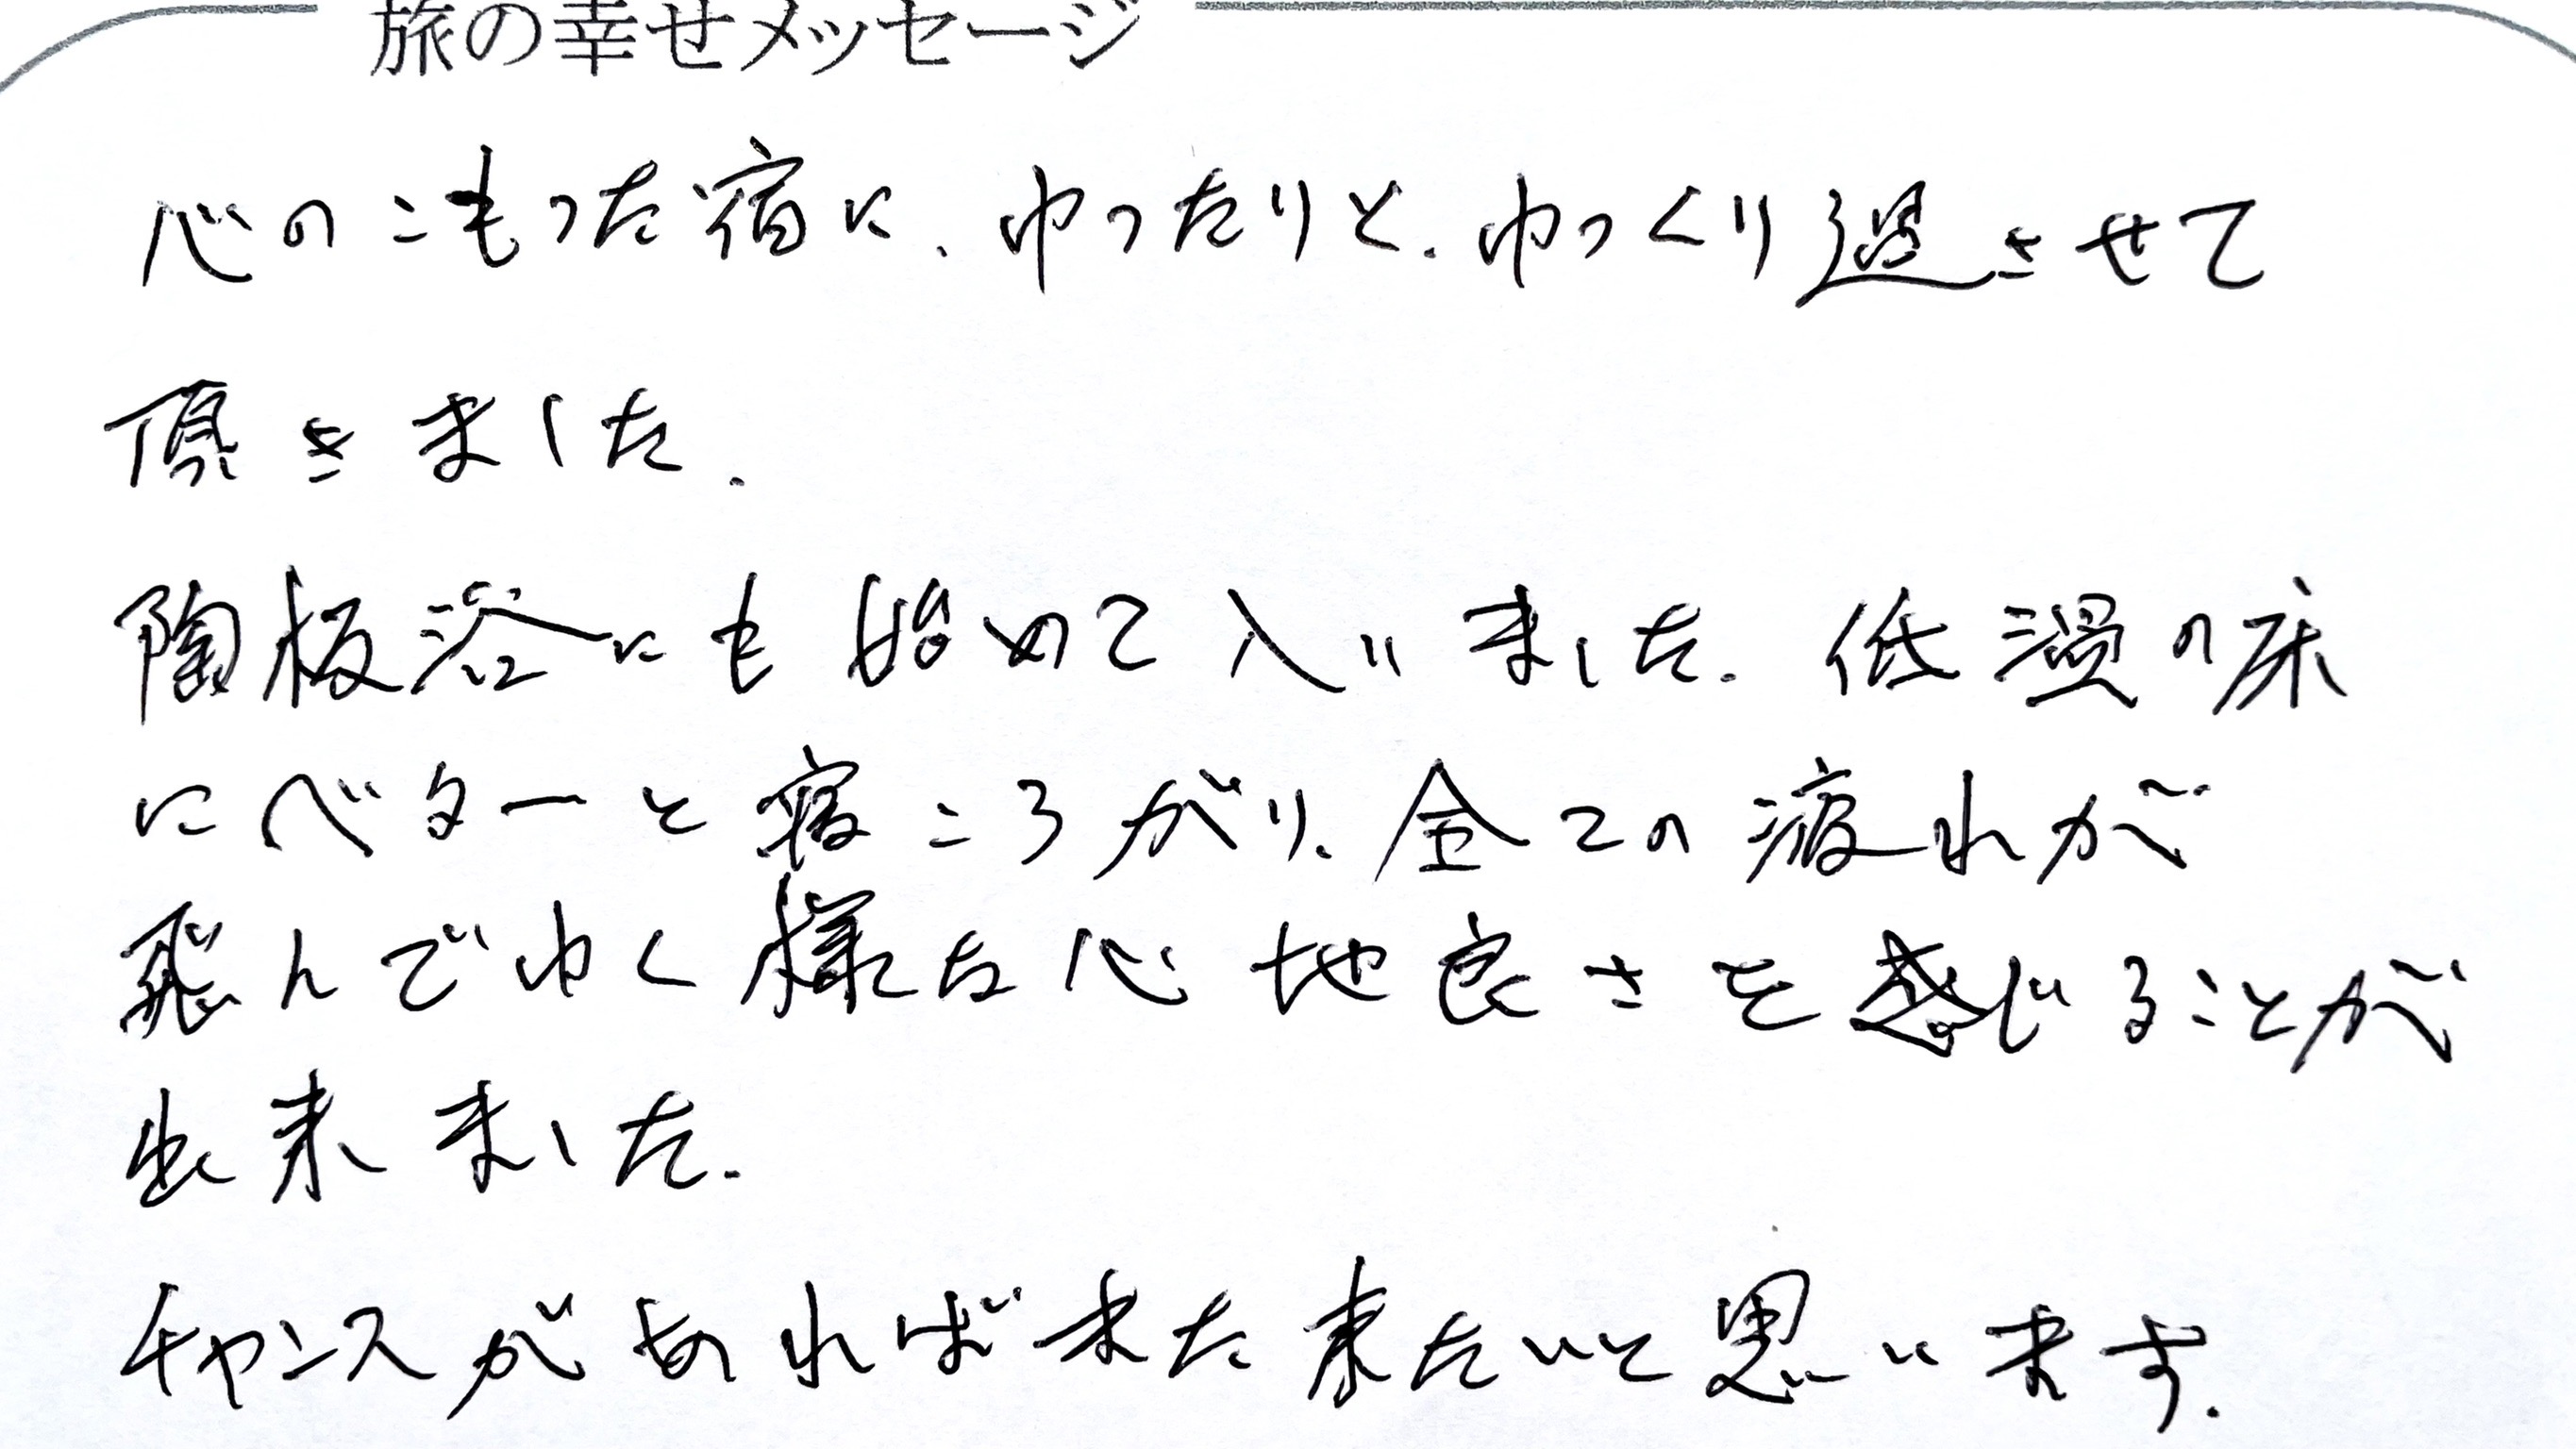 旅の幸せメッセージ
心のこもった宿に、ゆったりと、ゆっくり過させて
頂きました。
陶板浴にも始めて入いました。低温の床
にベターと寝ころがり、全ての疲れが
飛んでゆく様な心地良さを感じることが
出来ました。
チャンスがあればまた来たいと思います。